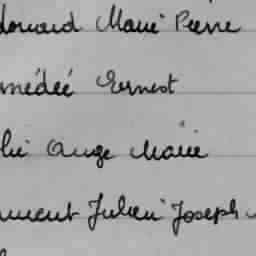 douard Marie Pierre
médée Ernest
lie Ange Marie
ment Julien Joseph